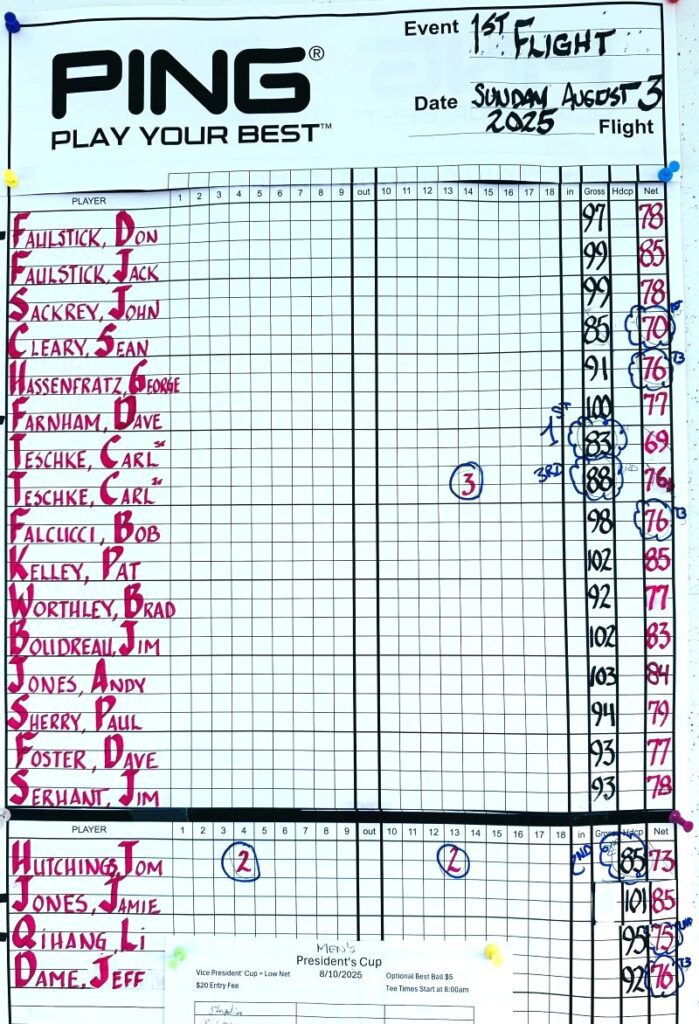 PING®
PLAY YOUR BEST™
Event 1ST FLIGHT
Date SUNDAY AUGUST 3
2025 Flight
PLAYER 1 2 3 4 5 6 7 8 9 out 10 11 12 13 14 15 16 17 18 in Gross Hdcp Net
FAULSTICK, DON 97 78
FAULSTICK, JACK 99 85
SACKREY, JOHN 99 78
CLEARY, SEAN 85 70
HASSENFRATZ, GEORGE 91 76 T3
FARNHAM, DAVE 100 77
TESCHKE, CARL 1ST 83 69
TESCHKE, CARL 3 3RD 88 76
FALCUCCI, BOB 98 76 T3
KELLEY, PAT 102 85
WORTHLEY, BRAD 92 77
BOUDREAU, JIM 102 83
JONES, ANDY 103 84
SHERRY, PAUL 94 79
FOSTER, DAVE 93 77
SERHANT, JIM 93 78
PLAYER 1 2 3 4 5 6 7 8 9 out 10 11 12 13 14 15 16 17 18 in Gross Hdcp Net
HUTCHINGS, TOM 2 2 2ND 85 73
JONES, JAMIE 101 85
QIHANG, Li 95 75 2ND
DAME, JEFF 92 76 T3
MEN'S
President's Cup
8/10/2025
Vice President' Cup = Low Net
$20 Entry Fee
Optional Best Ball $5
Tee Times Start at 8:00am